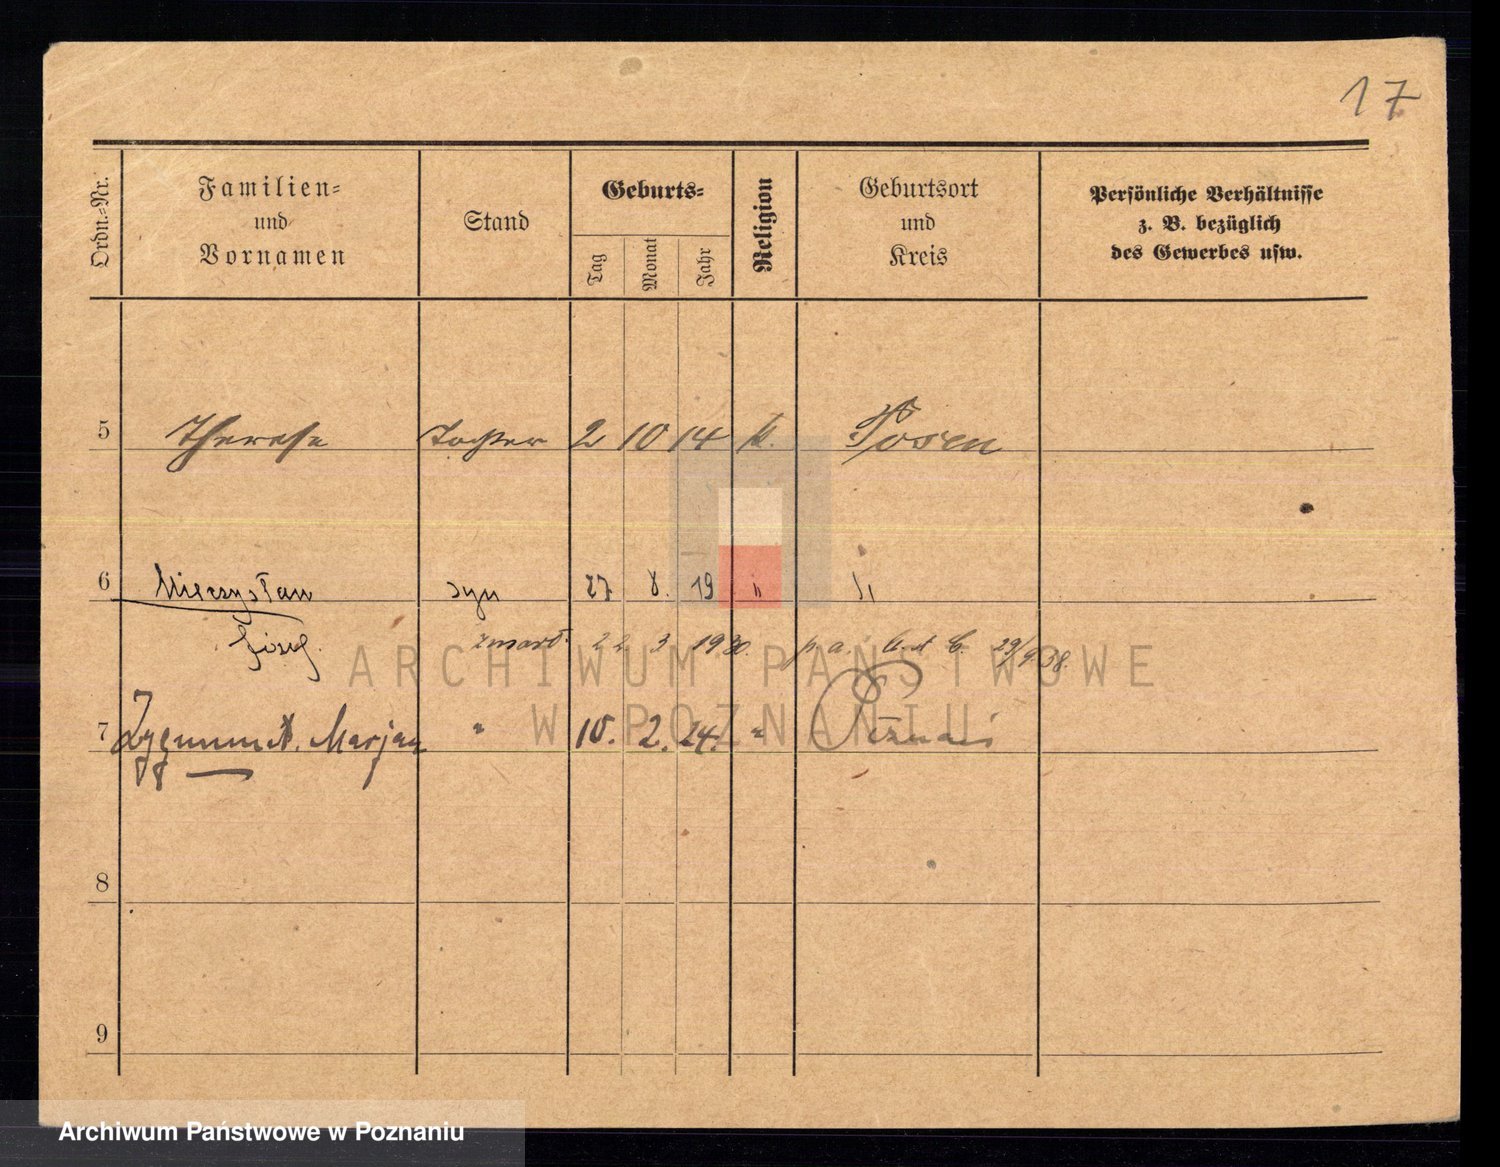 17
Ordn.=Nr.
Familien=
und
Vornamen
Stand
Geburts=
Tag
Monat
Jahr
Religion
Geburtsort
und
Kreis
Persönliche Verhältnisse
z. B. bezüglich
des Gewerbes usw.
5 Therese Tochter 2 10 14 k. Posen
6 Mieczysław syn 27 8. 19 " "
Józef zmarł. 22 3 1930. p. a. 29/9 38.
7 Zygmunt. Marjan " 10. 2. 24. " Poznań
8
9
ARCHIWUM PAŃSTWOWE
W POZNANIU
Archiwum Państwowe w Poznaniu